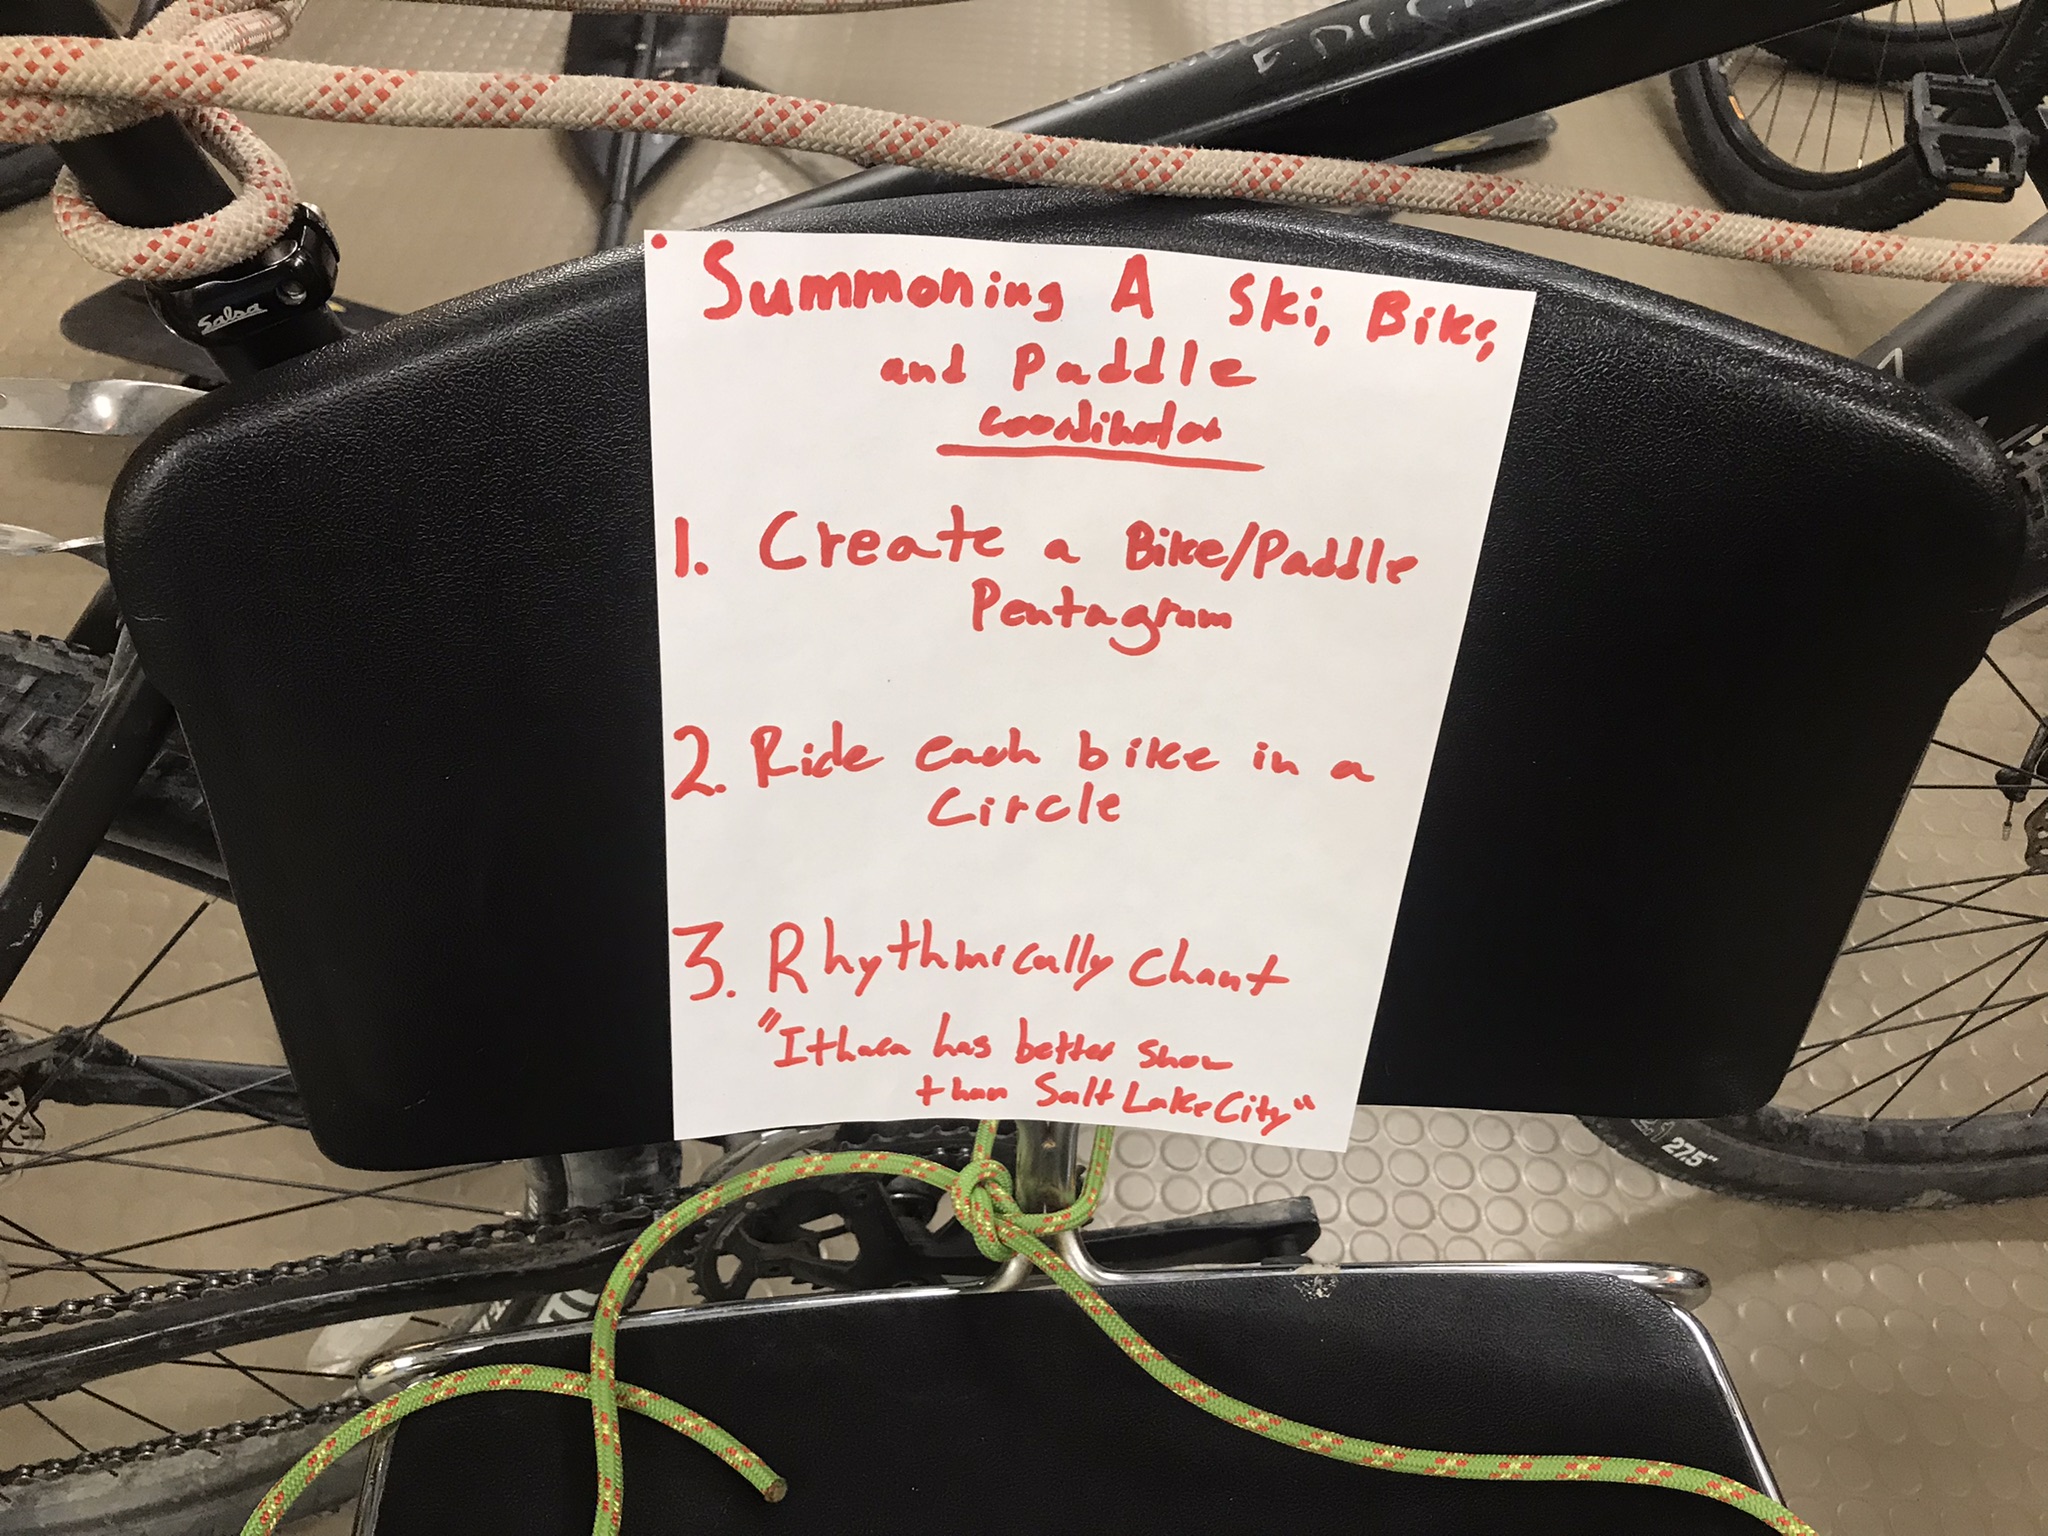 Salsa
Summoning A Ski, Bike,
and Paddle
coordinator
1. Create a Bike/Paddle
Pentagram
2. Ride each bike in a
Circle
3. Rhythmically Chant
"Ithaca has better snow
than Salt Lake City"
27.5"